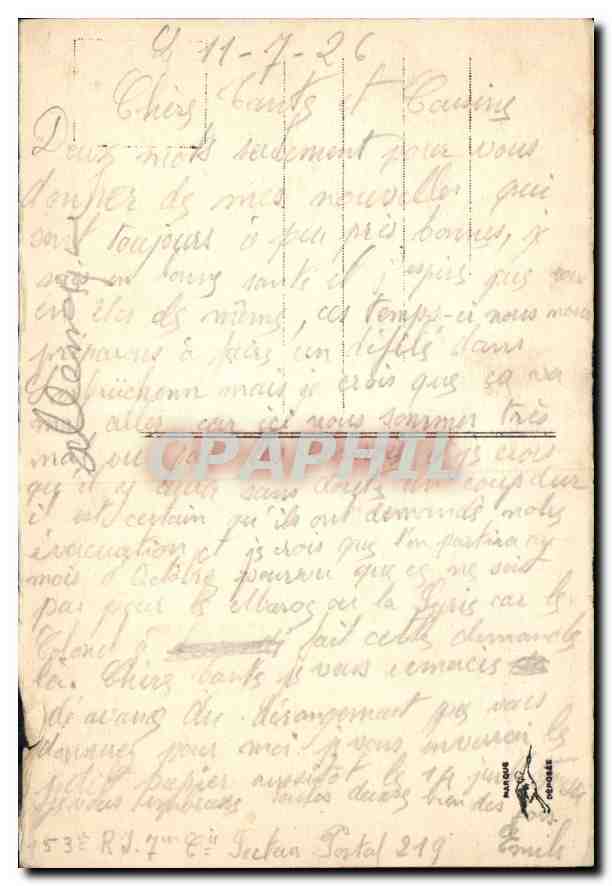 11-7-26
Chers Tante et Cousins
Deux mots seulement pour vous
donner de mes nouvelles qui
sont toujours à peu près bonnes, je
suis en bonne santé et j'espère que
en êtes de même, ces temps-ci nous nous
préparons à faire un défilé dans
mais je crois que ça va
mal aller car ici nous sommes très
mal vu je crois
qu'il y aura sans doute un coup dur
il est certain qu'ils ont demandé notre
évacuation et je crois que l'on partira au
mois d'Octobre pourvu que ce ne soit
pas pour le Maroc ou la Syrie car le
Colonel a fait cette demande
là. Chère Tante je vous remercie
d'avance du dérangement que vous
donner pour moi je vous enverrai le
petit papier aussitôt le 14 juillet
Je vous embrasse toutes deux bien des fois.
Emile
153e R.I. 7me Cie Secteur Postal 219
allemagne
CPAPHIL
MARQUE DÉPOSÉE